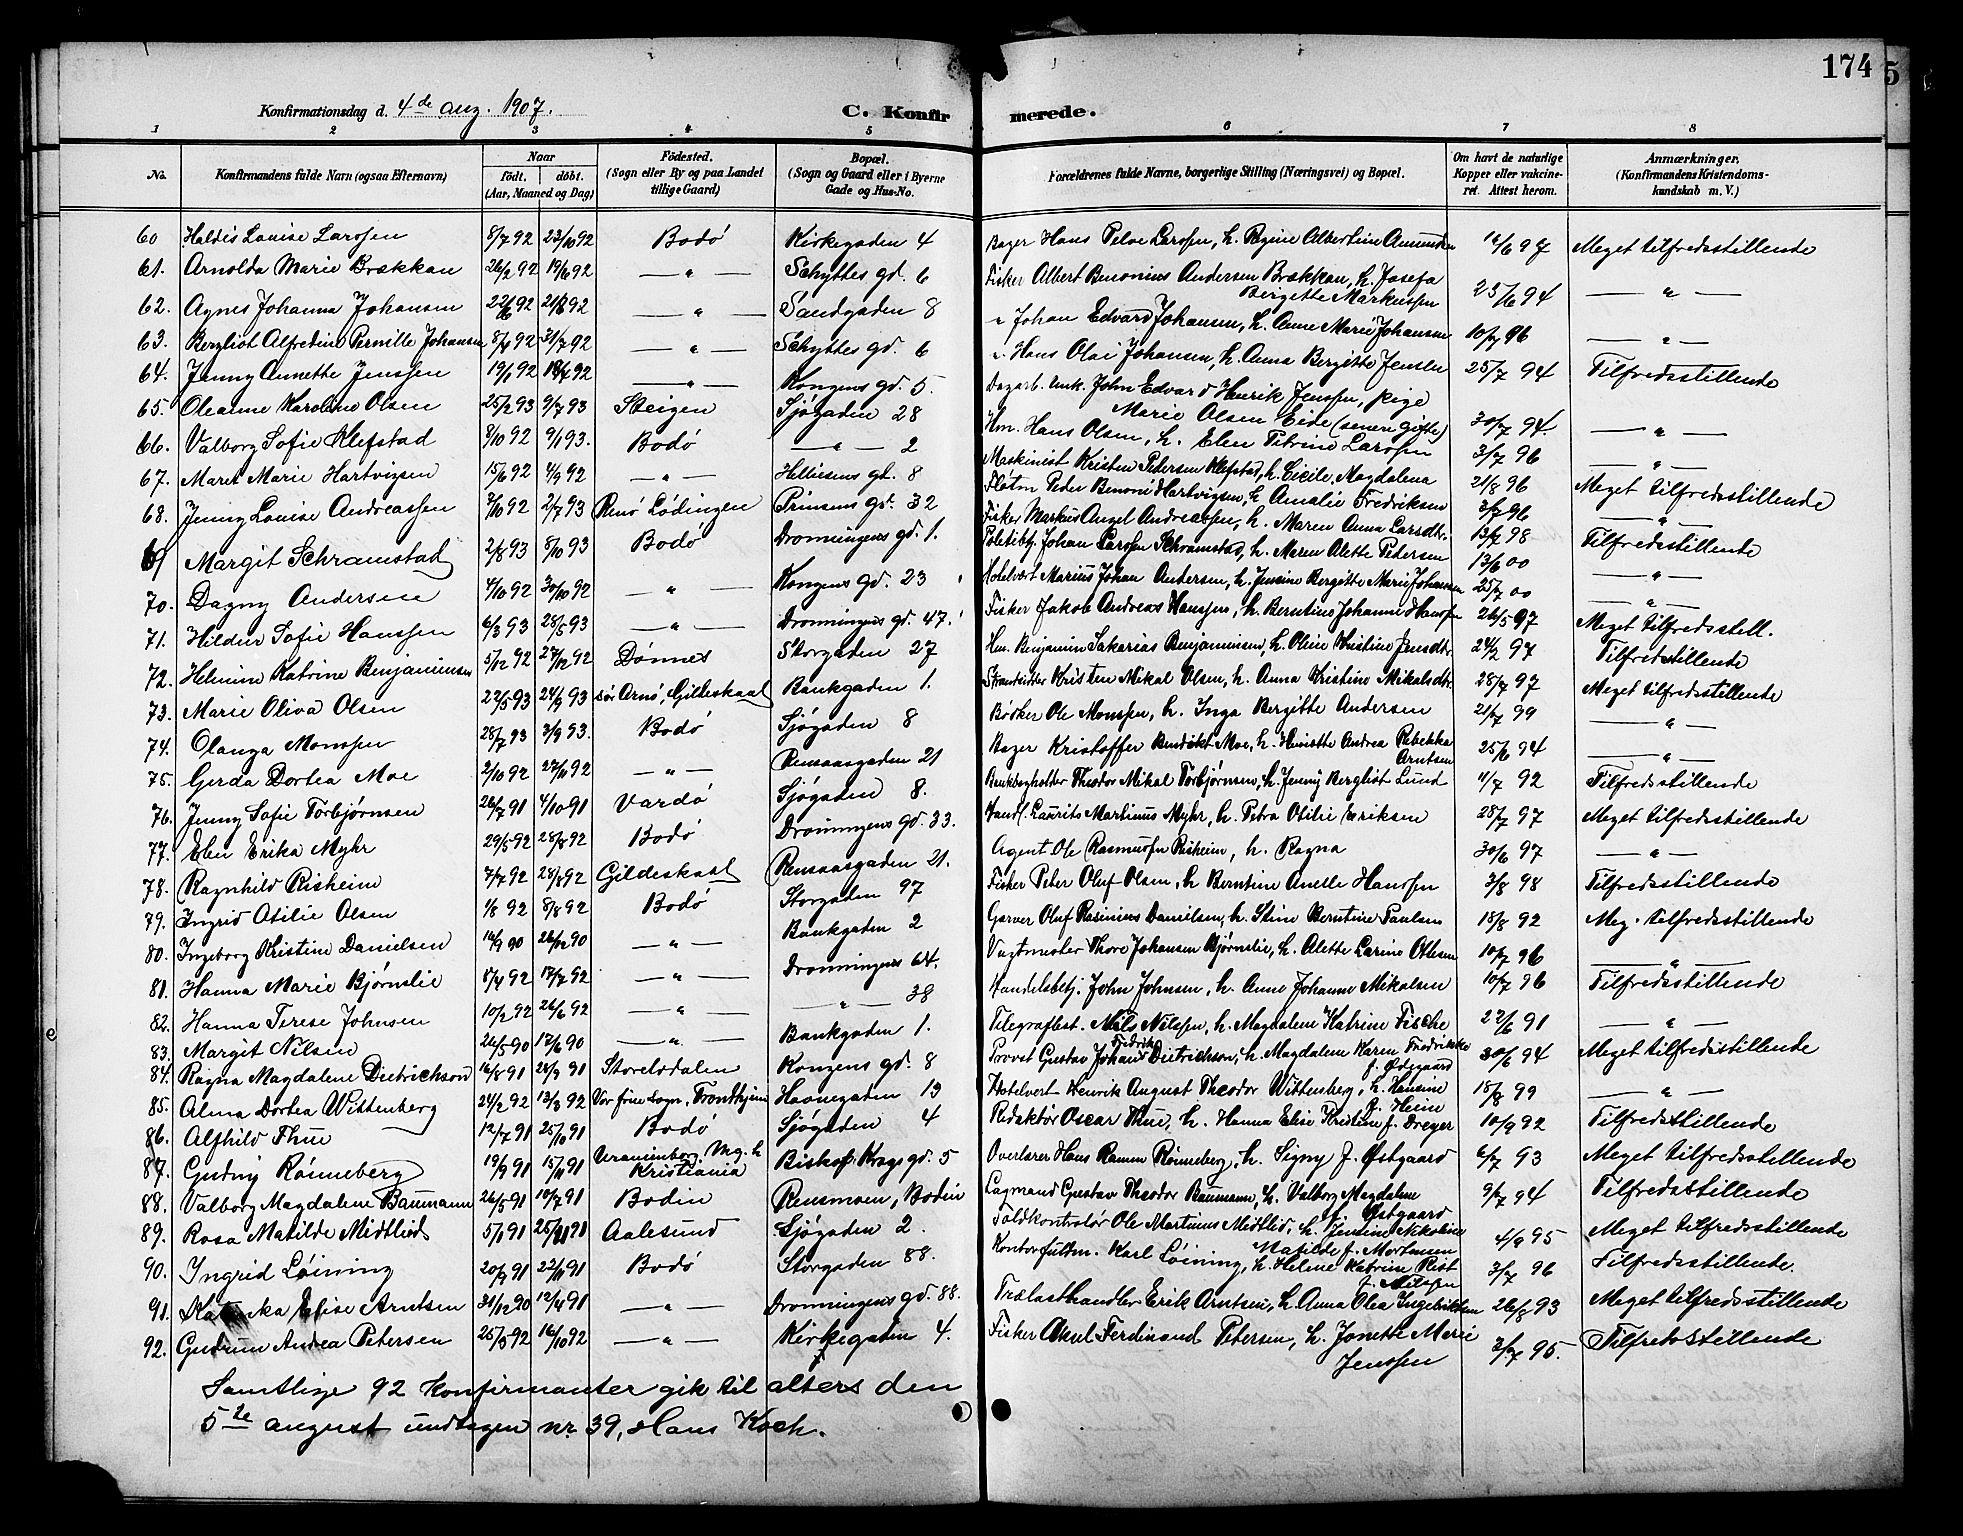 174
Konfirmationsdag d. 4de aug. 1907. C. Konfirmerede.
1 2 3 4 5 6 7 8
No. Konfirmandens fulde Navn (ogsaa Efternavn) Naar født. døbt. (Aar, Maaned og Dag) Fødested. (Sogn eller By og paa Landet tillige Gaard) Bopæl. (Sogn og Gaard eller i Byerne Gade og Hus-No. Forældrenes fulde Navne, borgerlige Stilling (Næringsvei) og Bopæl. Om havt de naturlige Kopper eller vakcineret. Attest herom. Anmærkninger. (Konfirmandens Kristendomskundskab m. V.)
60 Haldis Louise Larssen 8/7 92 23/10 92 Bodø Kirkegaden 4 Bager Hans Peloe Larssen, h. Regine Albertine Amundsen Meget tilfredsstillende
61. Arnolda Marie Brækkan 26/2 92 19/6 92 — " — Schyttes gd. 6 Fisker Albert Benonius Andersen Brækkan, h. Josefa Bergette Markussen 25/6 94 — " —
62. Agnes Johanna Johansen — " — Sandgaden 8 " Johan Edvard Johansen, h. Anne Marie Johansen 10/7 96 — " —
63. Bergliot Alfredine Pernille Johansen 31/7 92 — " — Schyttes gd. 6 " Hans Olai Johansen, h. Anna Bergitte Jensen 25/7 94 Tilfredsstillende
64. Jenny Annette Jenssen 19/1 92 — " — Kongens gd. 5. Dagarb. unk. John Edvard Henrik Jenssen, pige Marie Olsen Eide (senere gifte) 30/7 94. — " —
65. Oleanne Karoline Olsen 25/2 93 9/7 93 Steigen Sjøgaden 28 Hm. Hans Olsen, h. Elen Petrine Larssen 3/7 96 — " —
66. Valborg Sofie Klefstad 8/10 92 9/1 93. Bodø — " — 2 Maskinist Kristen Pedersen Klefstad, h. Cicilie Magdalena 21/8 96 Meget tilfredsstillende
67. Maret Marie Hartvigsen 15/6 92 4/9 92 — " — Hellesens gt. 8 Fløtm Peder Benoni Hartvigsen, h. Amalie Fredriksen 3/7 96 — " —
68. Jenny Louise Andreassen 7/10 92 2/7 93 Renø Lødingen Prinsens gt. 32 Fisker Markus Angel Andreassen, h. Maren Anna Larsdtr. 13/7 98 Tilfredsstillende
69 Margit Schramstad 2/8 93 8/10 93 Bodø Dronningens gd. 1. Politibtj. Johan Larssen Schramstad, h. Maren Alette Pedersen 13/6 00 — " —
70. Dagny Andersen 4/10 92 30/10 92 — " — Kongens gd. 23 Hotelvært Marius Johan Andersen, h. Jensine Bergitte Marie Johansen 25/7 00 — " —
71. Hildur Sofie Hanssen 6/3 93 28/5 93 — " — Dronningens gd. 47. Fisker Jakob Andreas Hanssen, h. Berntine Johanne Hanssen 26/5 97 Meget tilfredsstill.
72. Helmine Katrine Benjaminsen 5/12 92 27/12 92 Dønnes Storgaden 27 Hm. Benjamin Sakarias Benjaminsen, h. Oline Kristine Jensdtr. 24/2 97 Tilfredsstillende
73. Marie Oliva Olsen 22/5 93 24/9 93 Sør Arnø, Gildeskaal Bankgaden 1. Strandsidder Kristen Mikal Olsen, h. Anna Kristine Mikalsdtr. 28/7 97 Meget tilfredsstillende
74. Olanga Monssen 28/7 93 3/9 93. Bodø Sjøgaden 8 Bødker Ole Monssen, h. Inga Bergitte Andersen 21/7 99 — " —
75. Gerda Dortea Moe 2/10 92 27/11 92 — " — Rensaasgaden 21 Bager Kristoffer Bendikt Moe, h. Henriette Andrea Rebekka Arntsen 25/6 94 — " —
76. Jenny Sofie Torbjørnsen 26/7 91 4/10 91 Vardø Sjøgaden 8. Bankbogholder Theodor Mikal Torbjørnsen, h. Jenny Bergliot Lund 11/7 92 Tilfredsstillende
77. Elen Erika Myhr 29/5 92 28/8 92 Bodø Dronningens gd. 33. Handl. Laurits Martinus Myhr, h. Petra Otilie Eriksen 28/7 97 Meget tilfredsstillende
78. Ragnhild Risheim 7/7 92 28/8 92 Gildeskaal Rensaasgaden 21. Agent Ole Rasmussen Risheim, h. Ragna 30/6 97 — " —
79. Ingrid Otilie Olsen 1/8 92 8/8 92 Bodø Storgaden 97 Fisker Peter Oluf Olsen, h Berntine Anelle Hanssen 3/8 98 Tilfredsstillende
80. Ingeborg Kristine Danielsen 14/9 90 26/12 90 — " — Bankgaden 2 Garver Oluf Rasinius Danielsen, h. Stine Berntine Paulsen 18/8 92 Meg. tilfredsstillende
81. Hanna Marie Bjørnslie 17/4 92 17/7 92 — " — Dronningens 64. Vagtmester Thore Johansen Bjørnslie, h. Alette Larine Ottesen 10/7 96 — " —
82. Hanna Terese Johnsen 10/2 92 26/6 92 — " — — " — 38 Handelsbetj. John Johnsen, h. Anne Johanne Mikalsen 10/7 96 Tilfredsstillende
83. Margit Nilsen 26/5 90 17/6 90 — " — Bankgaden 1. Telegrafbst. Nils Nilssen, h. Magdalene Katrine Fische 22/6 91 — " —
84. Ragna Magdalene Dietrichson 16/8 91 28/9 91 Storelvdalen Kongens gd. 8 Provst Gustav Johans Fredrik Dietrichson, h. Magdalene Karen Fredrikke f. Ødegaard 30/6 94 Meget tilfredsstillende
85. Alma Dortea Wittenberg 24/2 92 13/3 92 Vor frue sogn, Trondhjem Havnegaden 13 Hotelvert Henrik August Theodor Wittenberg, h. Hansine f. Heim 18/8 99 — " —
86. Alfhild Thue 12/7 91 25/10 91 Bodø Sjøgaden 4 Redaktør Oscar Thue, h. Hanna Elise Kristine f. Dreyer 10/9 92 Tilfredsstillende
87. Gudny Rønneberg 19/9 91 15/11 91 Uranienborg Mg.h. Kristiania Biskop Krags gd. 5 Overlærer Hans Ramm Rønneberg, h. Signy f. Østgaard 6/7 93 Meget tilfredsstillende
88. Valborg Magdalene Baumann 26/5 91 19/7 91 Bodin Rensmoen, Bodin Lagmand Gustav Theodor Baumann, h. Valborg Magdalene f. Østgaard 9/7 94 Tilfredsstillende
89. Rosa Matilde Midtlied 5/1 91 Aalesund Sjøgaden 2. Toldkontrolør Ole Martinus Midtlid, h. Jensine Nikoline Matilde f. Mortensen 4/9 95 Meget tilfredsstillende
90. Ingrid Løining 20/9 91 22/11 91 Bodø Storgaden 88. Kontorfuldm. Karl Løining, h. Helene Katrine Rist f. Nilssen 3/7 96 Tilfredsstillende.
91. Katinka Elise Arntsen 31/12 90 12/4 91 — " — Dronningens gd. 88. Trælasthandler Erik Arntsen, h. Anna Olea Ingebriktsen 26/8 93 Meget tilfredsstillende
92. Gudrun Andrea Petersen 25/3 92 16/10 92 — " — Kirkegaden 4. Fisker Aksel Ferdinand Petersen, h. Jonette Marie Jenssen 3/7 95. Tilfredsstillende
Samtlige 92 konfirmanter gik til alters den
5te august undtagen nr. 39, Hans Koch.